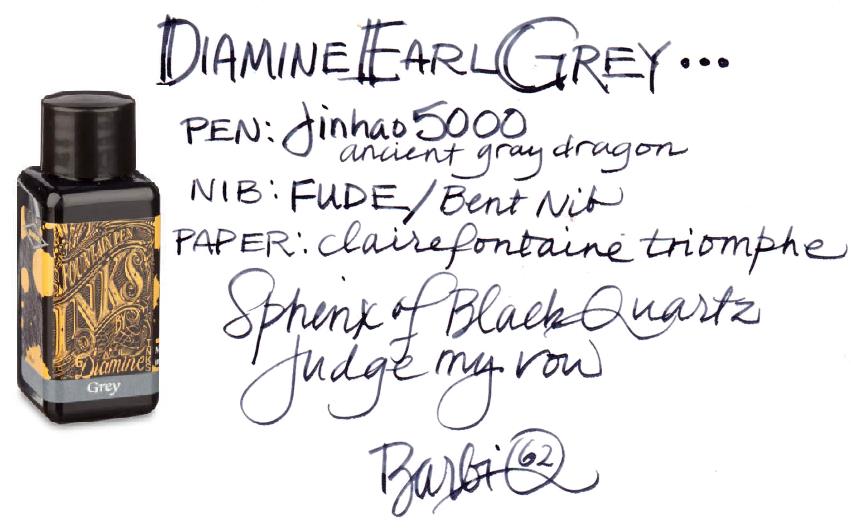 DIAMINE EARL GREY...
PEN: Jinhao 5000
ancient gray dragon
NIB: FUDE/Bent Nib
PAPER: clairefontaine triomphe
Sphinx of Black Quartz
judge my vow
Barbi 62
FOUNTAIN PEN
INKS
Diamine
Grey